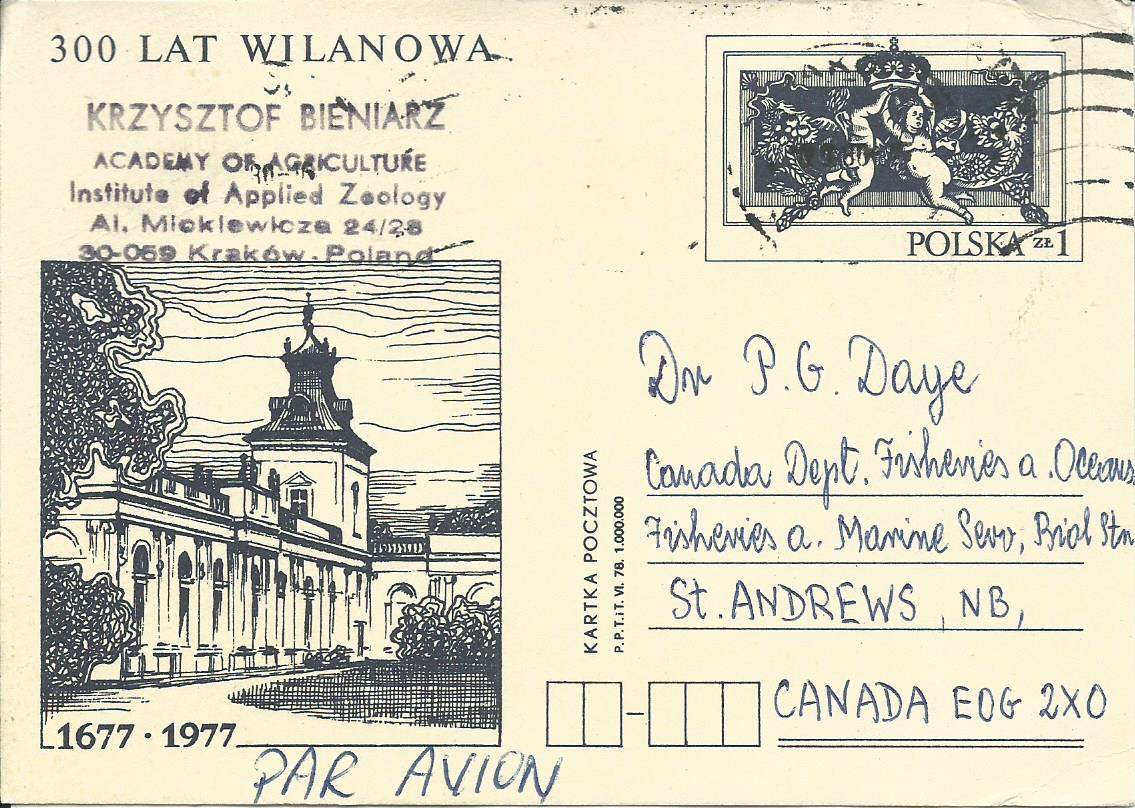 300 LAT WILANOWA
KRZYSZTOF BIENIARZ
ACADEMY OF AGRICULTURE
Institute of Applied Zoology
Al. Mickiewicza 24/28
30-059 Kraków. Poland
POLSKA ZŁ 1
Dr P. G. Daye
Canada Dept. Fisheries a. Oceans
Fisheries a. Marine Serv, Biol Stn
St. ANDREWS, NB,
CANADA E0G 2X0
KARTKA POCZTOWA
P.P.T.iT. VI. 78. 1.000.000
1677 · 1977
PAR AVION